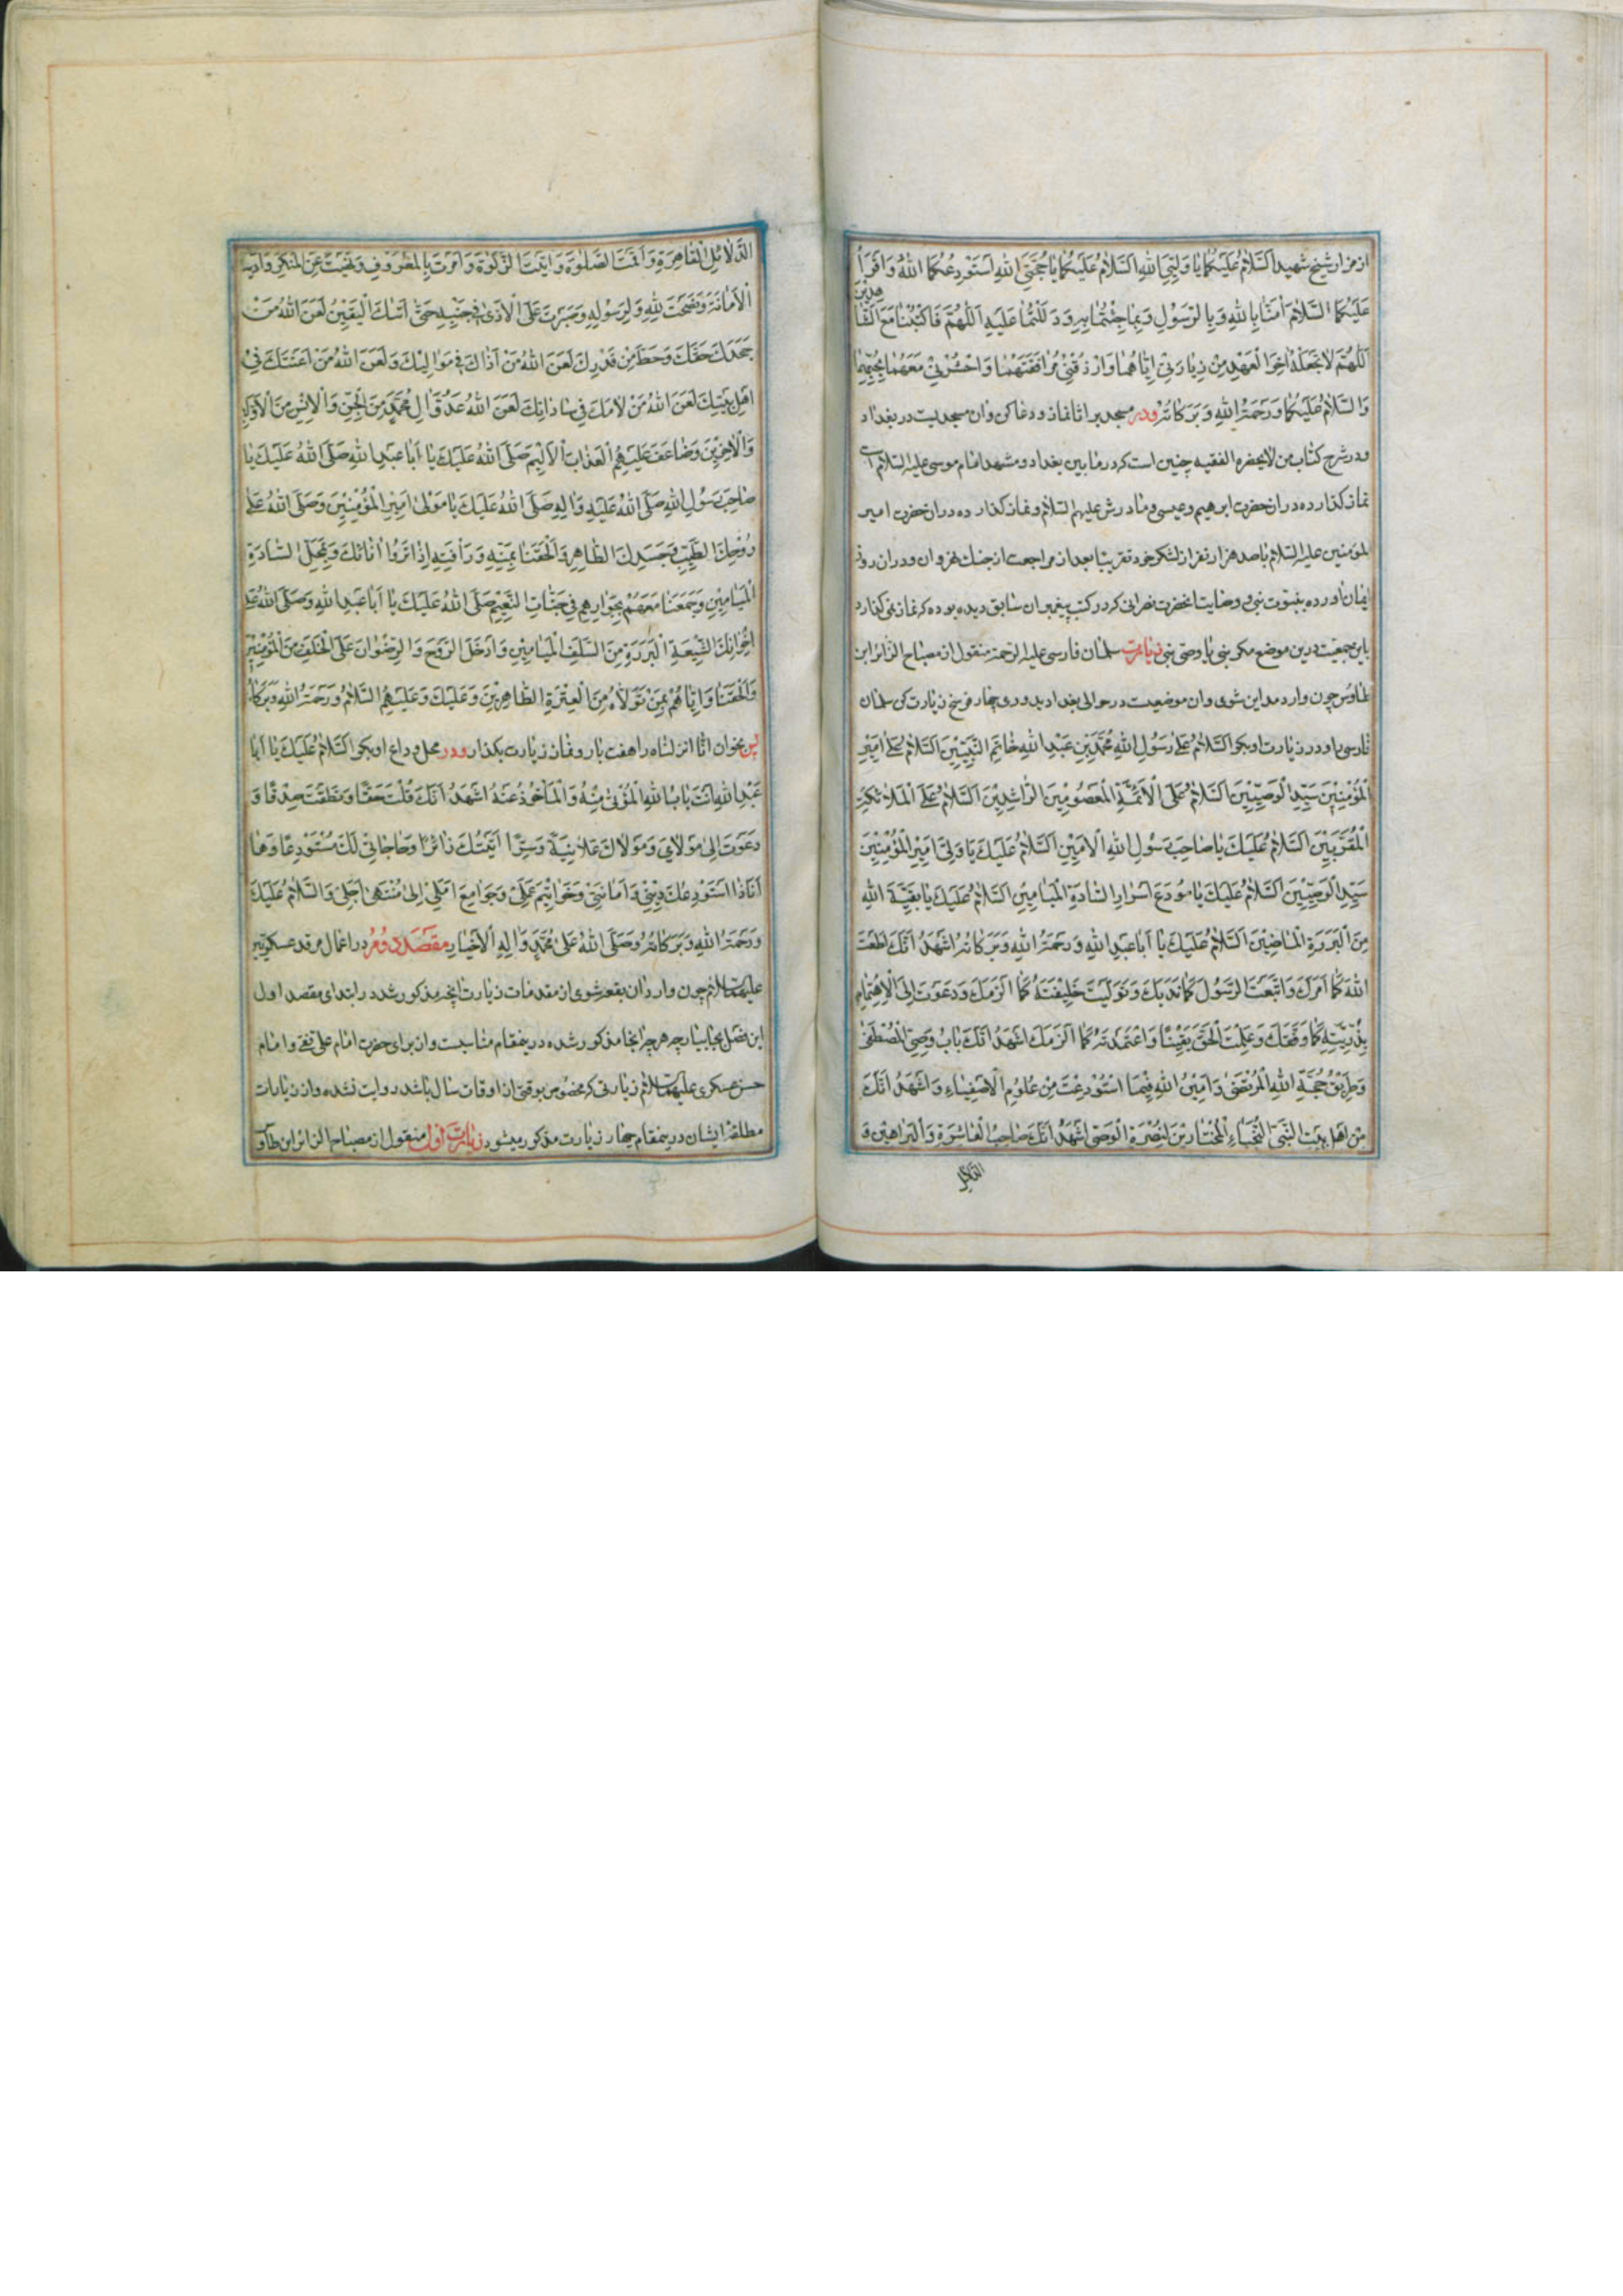 از مزار شیخ شهید اَلسَّلامُ عَلَیکُما یا وَلِیَّیِ اللهِ اَلسَّلامُ عَلَیکُما یا حُجَّتَیِ اللهِ اَستَودِعُکُمَا اللهَ وَاَقرَأُ
عَلَیکُمَا السَّلامَ اٰمَنّا بِاللهِ وَبِالرَّسُولِ وَبِما جِئتُما بِهِ وَدَلَلتُما عَلَیهِ اَللّهُمَّ فَاکتُبنا مَعَ الشّاهِدینَ
اَللّهُمَّ لا تَجعَلهُ اٰخِرَ العَهدِ مِن زِیارَتی اِیّاهُما وَارزُقنی مُرافَقَتَهُما وَاحشُرنی مَعَهُما بِحُبِّهِما
وَالسَّلامُ عَلَیکُما وَرَحمَةُ اللهِ وَبَرَکاتُهُ و در مسجد براثا نماز و دعا کن و ان مسجدیست در بغداد
و در شرح کتاب من لا یحضره الفقیه چنین است که در ما بین بغداد و مشهد امام موسی علیه السلام است
نماز کذارده در ان حضرت ابرهیم و عیسی و مادرش علیهم السلام و نماز کذارده در ان حضرت امیر
المؤمنین علیه السلام با صد هزار نفر از لشکر خود تقریبا بعد از مراجعت از جنك نهروان و در ان روز
ایمان اورده بنبوت نبی و وصایت انحضرت نصرانی که در کتب پیغمبران سابق دیده بوده که نماز نمی کذارد
باین جمعیت درین موضع مکر نبی یا وصی نبی زیارت سلمان فارسی علیه الرحمة منقول از مصباح الزائر ابن
طاوس چون وارد مداین شوی و ان موضعیست در حوالی بغداد بدوری چهار فرسخ زیارت کن سلمان
فارسی را و در زیارت او بکو اَلسَّلامُ عَلی رَسُولِ اللهِ مُحَمَّدِبنِ عَبدِ اللهِ خاتَمِ النَّبِیّینَ اَلسَّلامُ عَلی اَمیرِ
المُؤمِنینَ سَیِّدِ الوَصِیّینَ اَلسَّلامُ عَلَی الاَئِمَّةِ المَعصُومینَ الرّاشِدینَ اَلسَّلامُ عَلَی المَلائِکَةِ
المُقَرَّبینَ اَلسَّلامُ عَلَیكَ یا صاحِبَ رَسُولِ اللهِ الاَمینِ اَلسَّلامُ عَلَیكَ یا وَلِیَّ اَمیرِ المُؤمِنینَ
سَیِّدِ الوَصِیّینَ اَلسَّلامُ عَلَیكَ یا مُودَعَ اَسرارِ السّادَةِ المَیامینِ اَلسَّلامُ عَلَیكَ یا بَقِیَّةَ اللهِ
مِنَ البَرَرَةِ الماضینَ اَلسَّلامُ عَلَیكَ یا اَبا عَبدِ اللهِ وَرَحمَةُ اللهِ وَبَرَکاتُهُ اَشهَدُ اَنَّكَ اَطَعتَ
اللهَ کَما اَمَرَكَ وَاتَّبَعتَ الرَّسُولَ کَما نَدَبَكَ وَتَوَلَّیتَ خَلیفَتَهُ کَما اَلزَمَكَ وَدَعَوتَ اِلَی الاِهتِمامِ
بِذُرِّیَّتِهِ کَما وَفَّقَكَ وَعَلِمتَ الحَقَّ یَقینًا وَاعتَمَدتَهُ کَما اَلزَمَكَ اَشهَدُ اَنَّكَ بابُ وَصِیِّ المُصطَفی
وَطَریقُ حُجَّةِ اللهِ المُرتَضی وَاَمینُ اللهِ فیمَا استُودِعتَ مِن عُلُومِ الاَصفِیاءِ وَاَشهَدُ اَنَّكَ
مِن اَهلِ بَیتِ النَّبِیِّ النُّجَباءِ المُختارینَ لِنُصرَةِ الوَصِیِّ اَشهَدُ اَنَّكَ صاحِبُ العاشِرَةِ وَالبَراهینِ وَ
الدَّلائِلِ
الدَّلائِلِ القاهِرَةِ وَاَقَمتَ الصَّلوةَ وَاٰتَیتَ الزَّکوةَ وَاَمَرتَ بِالمَعرُوفِ وَنَهَیتَ عَنِ المُنکَرِ وَادَّیتَ
الاَمانَةَ وَنَصَحتَ لِلهِ وَلِرَسُولِهِ وَصَبَرتَ عَلَی الاَذی فی جَنبِهِ حَتّی اَتیكَ الیَقینُ لَعَنَ اللهُ مَن
جَحَدَكَ حَقَّكَ وَحَطَّ مِن قَدرِكَ لَعَنَ اللهُ مَن اٰذاكَ فی مَوالیكَ وَلَعَنَ اللهُ مَن اَعنَتَكَ فی
اَهلِ بَیتِكَ لَعَنَ اللهُ مَن لامَكَ فی ساداتِكَ لَعَنَ اللهُ عَدُوَّ اٰلِ مُحَمَّدٍ مِنَ الجِنِّ وَالاِنسِ مِنَ الاَوَّلینَ
وَالاٰخِرینَ وَضاعَفَ عَلَیهِمُ العَذابَ الاَلیمَ صَلَّی اللهُ عَلَیكَ یا اَبا عَبدِ اللهِ صَلَّی اللهُ عَلَیكَ یا
صاحِبَ رَسُولِ اللهِ صَلَّی اللهُ عَلَیهِ وَاٰلِهِ صَلَّی اللهُ عَلَیكَ یا مَولی اَمیرِ المُؤمِنینَ وَصَلَّی اللهُ عَلی
رُوحِكَ الطَّیِّبِ وَجَسَدِكَ الطّاهِرِ وَاَلحَقَنا بِمَنِّهِ وَرَأفَتِهِ اِذا تَوَفّانا بِكَ وَبِمَحَلِّ السّادَةِ
المَیامینِ وَجَمَعَنا مَعَهُم بِجِوارِهِم فی جَنّاتِ النَّعیمِ صَلَّی اللهُ عَلَیكَ یا اَبا عَبدِ اللهِ وَصَلَّی اللهُ عَلی
اِخوانِكَ الشّیعَةِ البَرَرَةِ مِنَ السَّلَفِ المَیامینِ وَاَدخَلَ الرَّوحَ وَالرِّضوانَ عَلَی الخَلَفِ مِنَ المُؤمِنینَ
وَاَلحَقَنا وَاِیّاهُم بِمَن تَوَلّاهُ مِنَ العِترَةِ الطّاهِرینَ وَعَلَیكَ وَعَلَیهِمُ السَّلامُ وَرَحمَةُ اللهِ وَبَرَکاتُهُ
پس بخوان انا انزلناه را هفت بار و نماز زیارت بکذار و در محل وداع او بکو اَلسَّلامُ عَلَیكَ یا اَبا
عَبدِ اللهِ اَنتَ بابُ اللهِ المُؤتی مِنهُ وَالمَأخُوذُ عَنهُ اَشهَدُ اَنَّكَ قُلتَ حَقًّا وَنَطَقتَ صِدقًا وَ
دَعَوتَ اِلی مَولایَ وَمَولاكَ عَلانِیَةً وَسِرًّا اَتَیتُكَ زائِرًا وَحاجاتی لَكَ مُستَودِعًا وَها
اَنَا ذا اَستَودِعُكَ دینی وَاَمانَتی وَخَواتیمَ عَمَلی وَجَوامِعَ اَمَلی اِلی مُنتَهی اَجَلی وَالسَّلامُ عَلَیكَ
وَرَحمَةُ اللهِ وَبَرَکاتُهُ وَصَلَّی اللهُ عَلی مُحَمَّدٍ وَاٰلِهِ الاَخیارِ مقصد دوم در اعمال مرقد عسکریین
علیهما السلام چون وارد ان بقعه شوی از مقدمات زیارت انچه مذکور شد در ابتدای مقصد اول
این فصل بجا بیار چه هر چه انجا مذکور شده درینمقام مناسبست و ان برای حضرت امام علی نقی و امام
حسن عسکری علیهما السلام زیارتی که مخصوص بوقتی از اوقات سال باشد روایت نشده و از زیارات
مطلقه ایشان درینمقام چهار زیارت مذکور میشود زیارت اول منقول از مصباح الزائر ابن طاوس